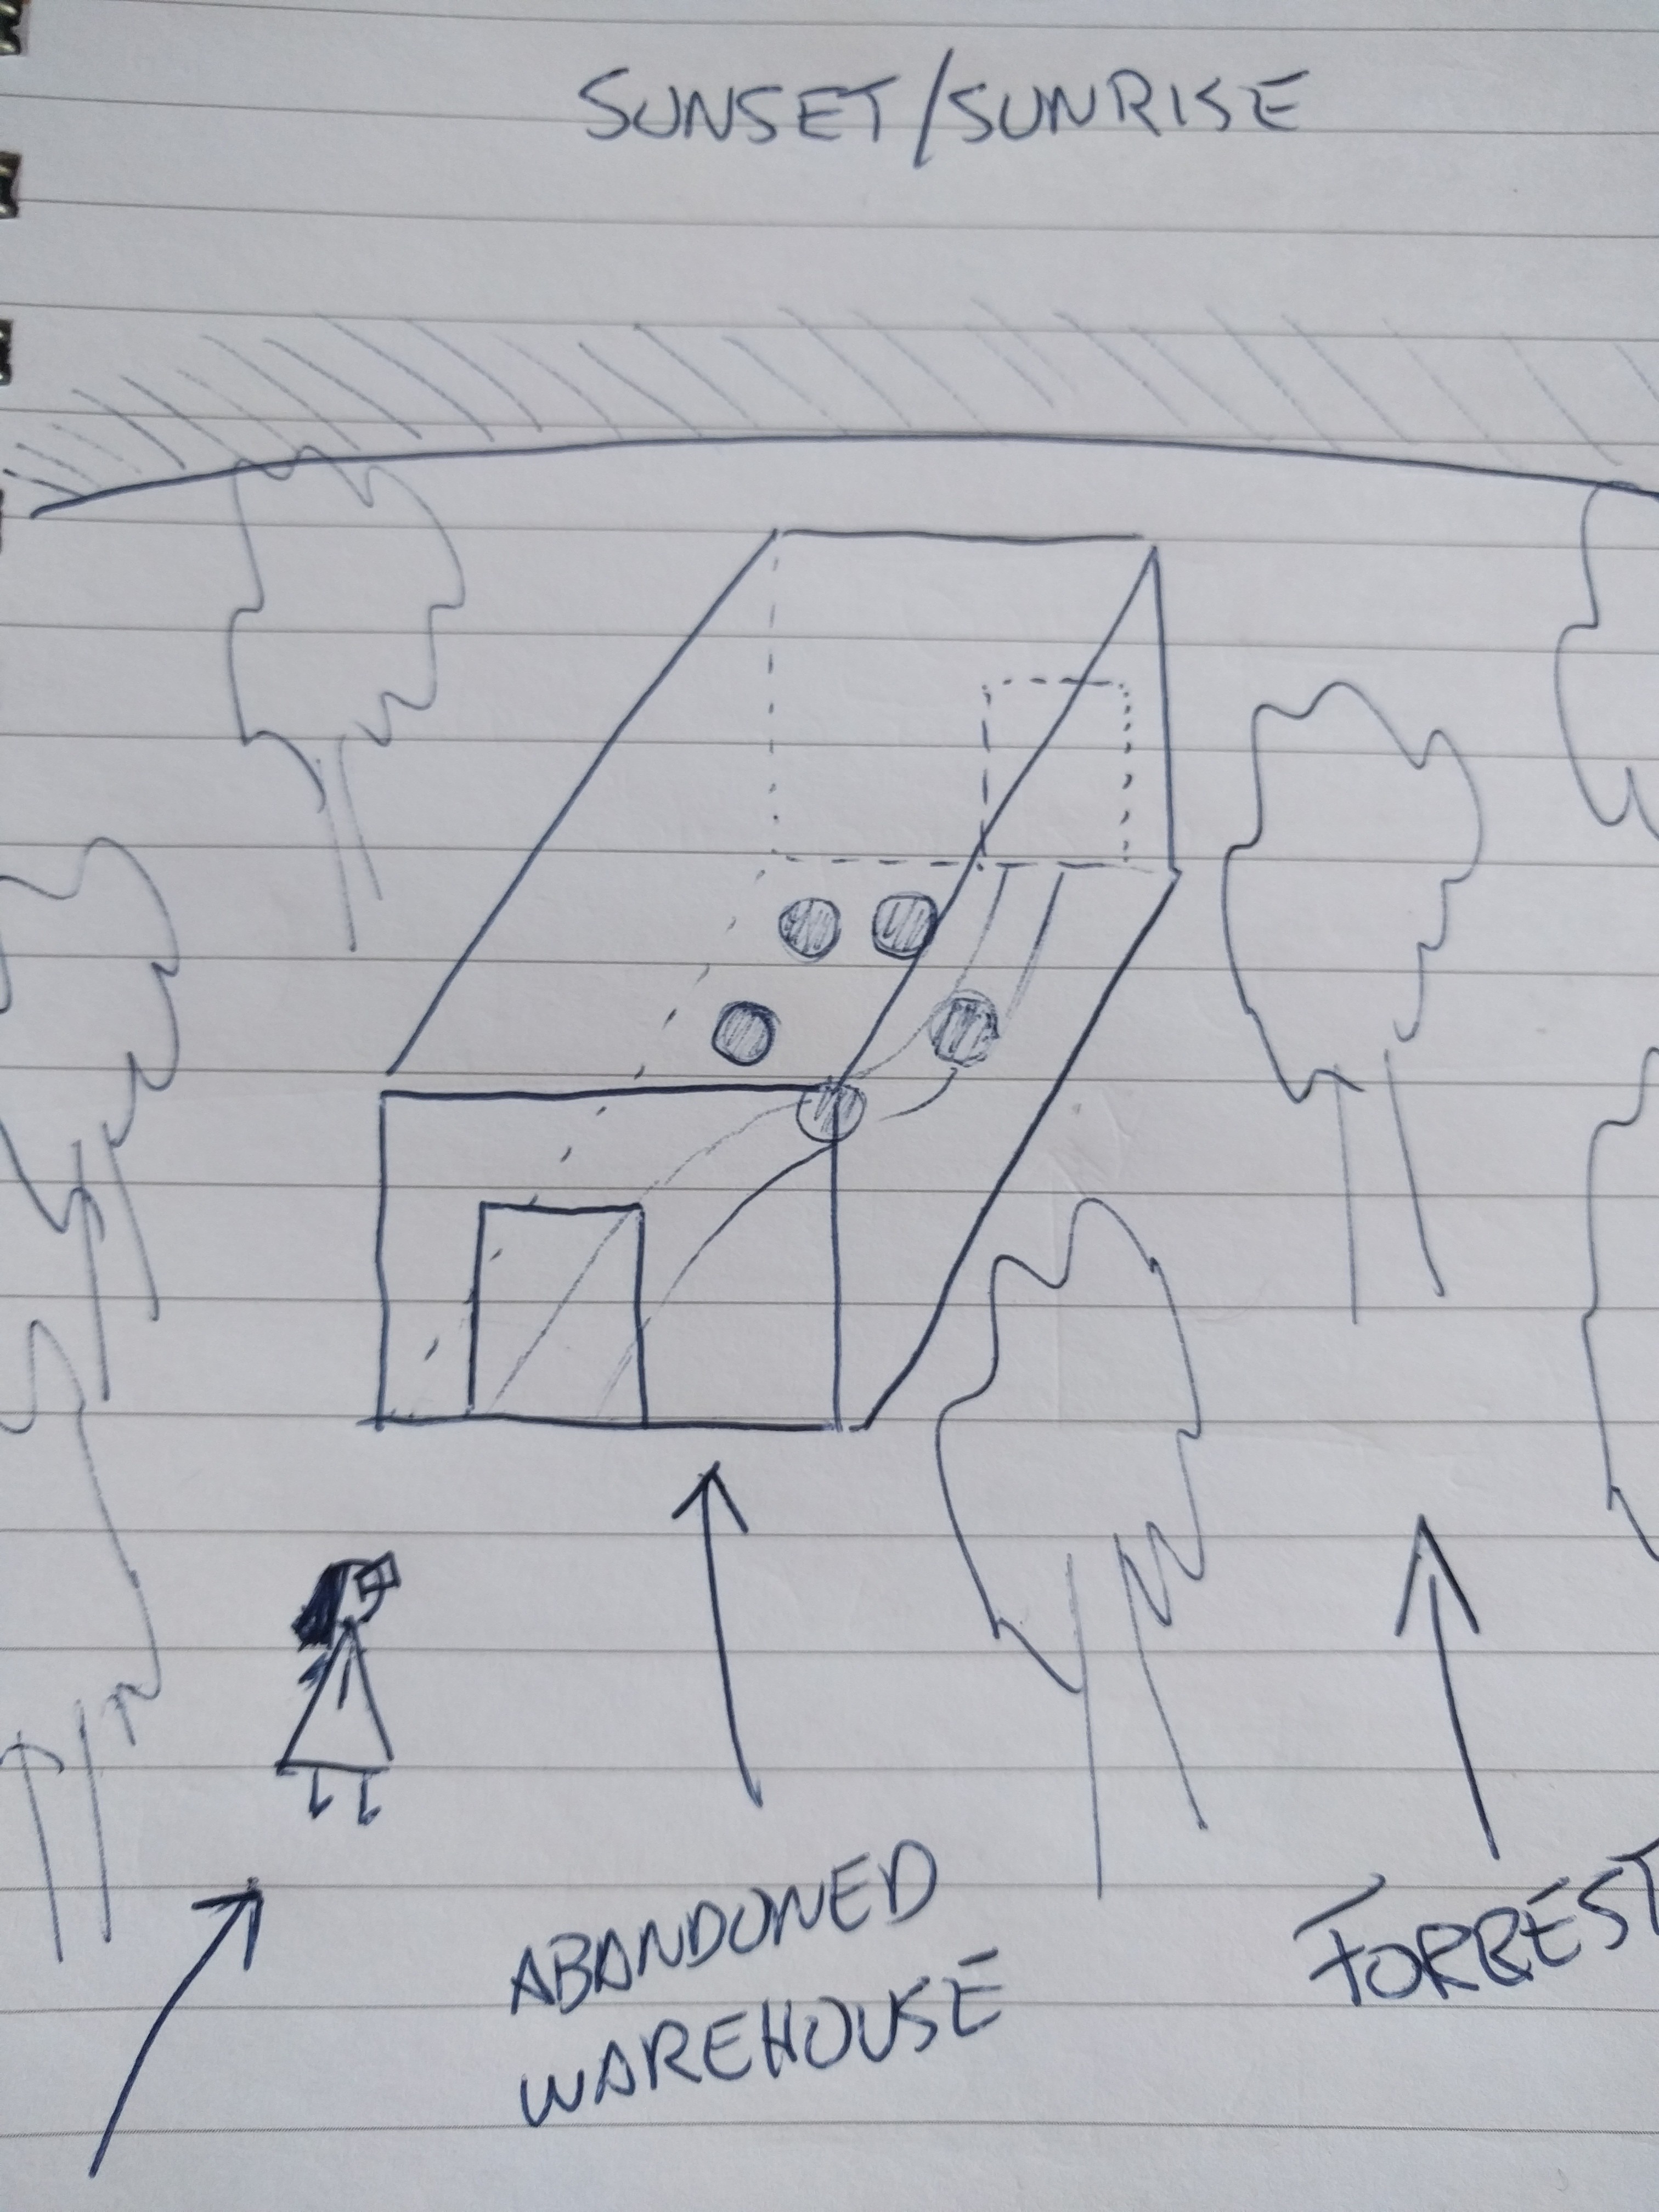 SUNSET/SUNRISE
ABANDONED
WAREHOUSE
FORREST